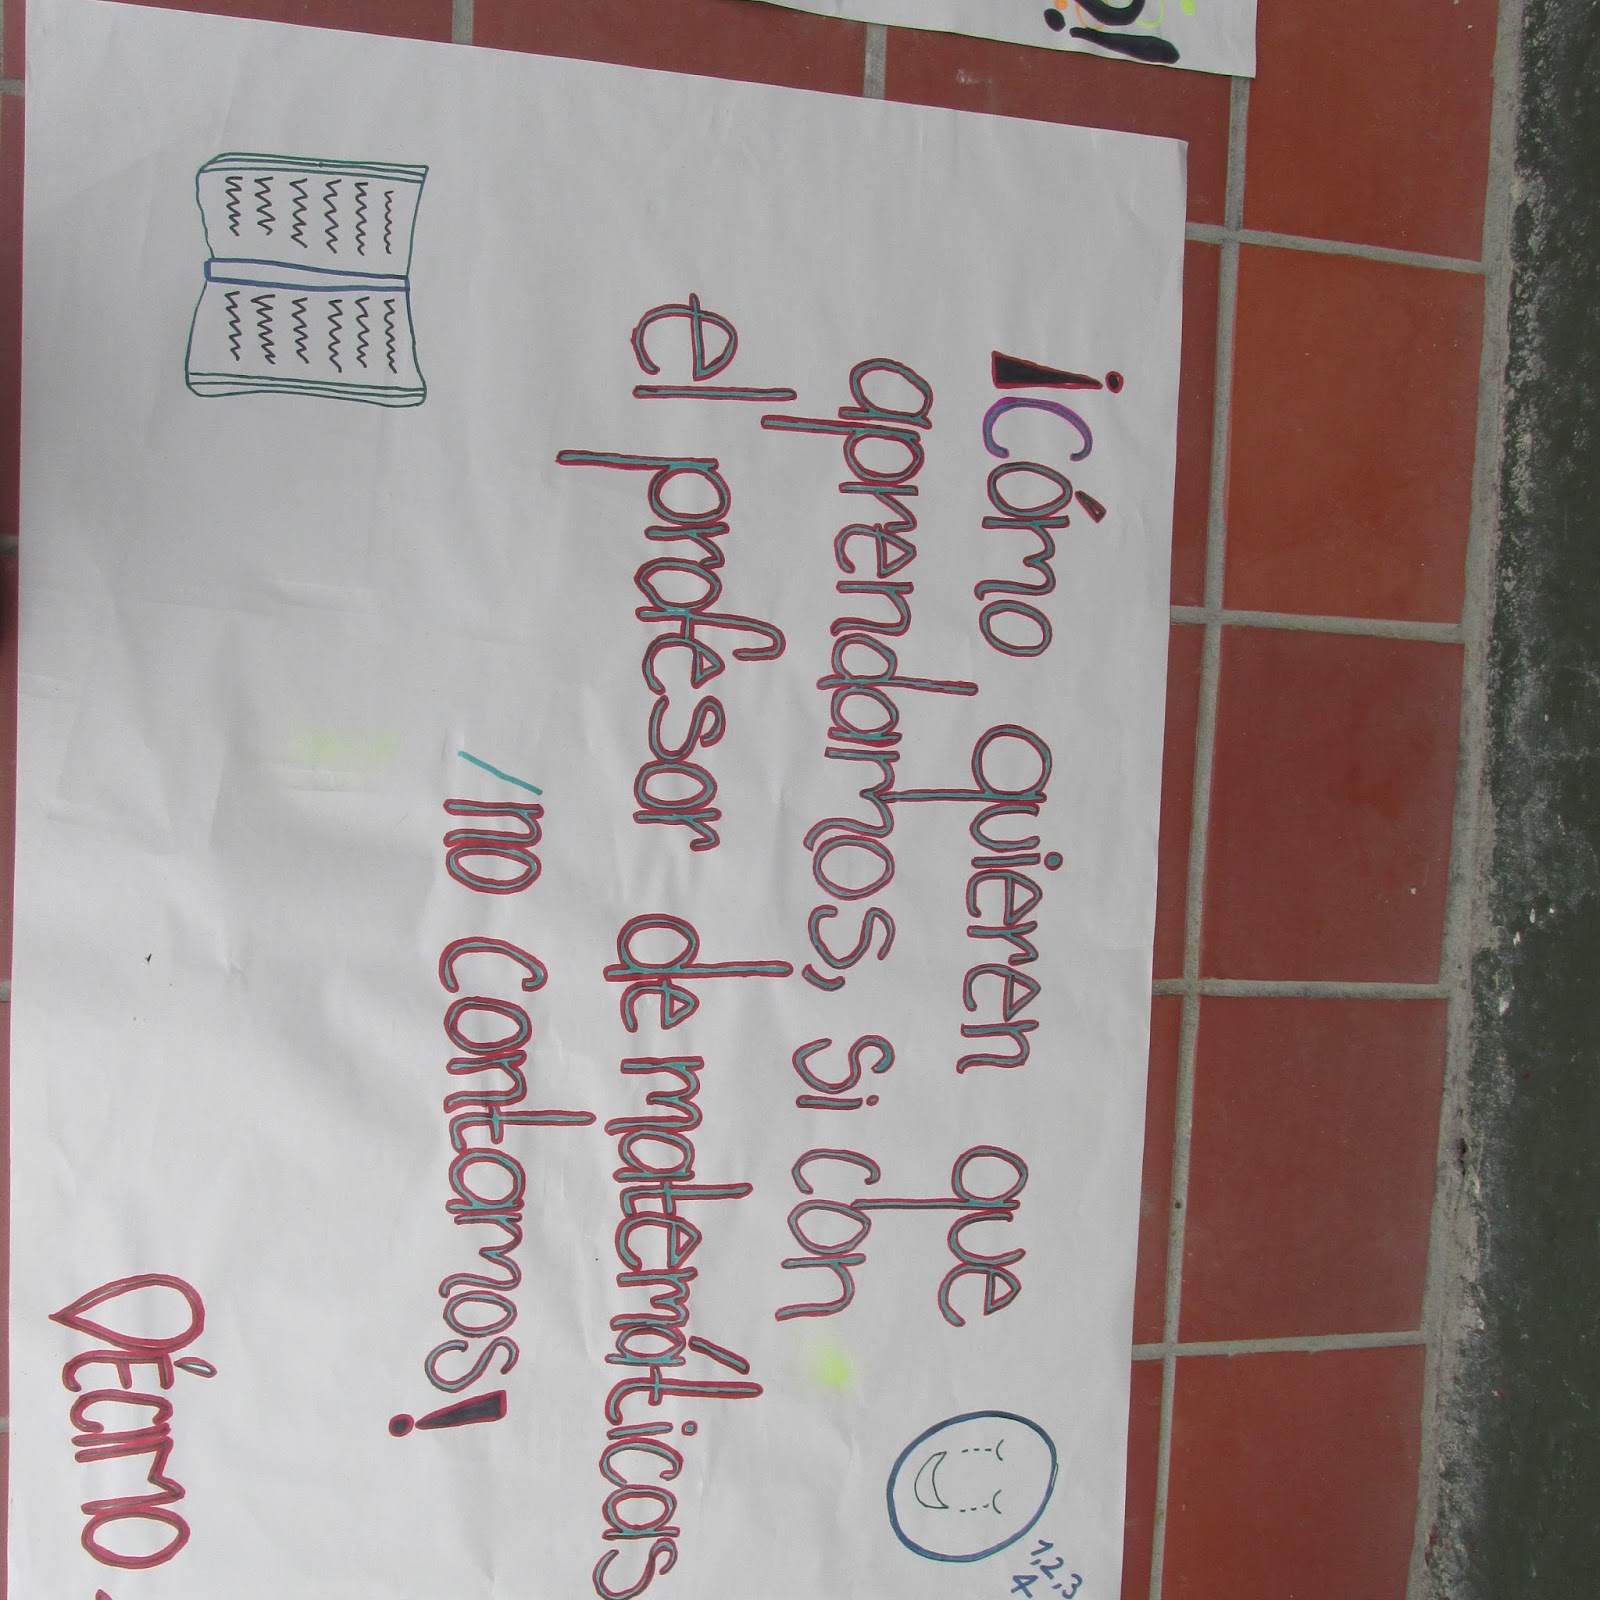 ¡Cómo quieren que
aprendamos, si con
el profesor de matemáticas
/no contamos!
1,2,3
4
DÉCIMO